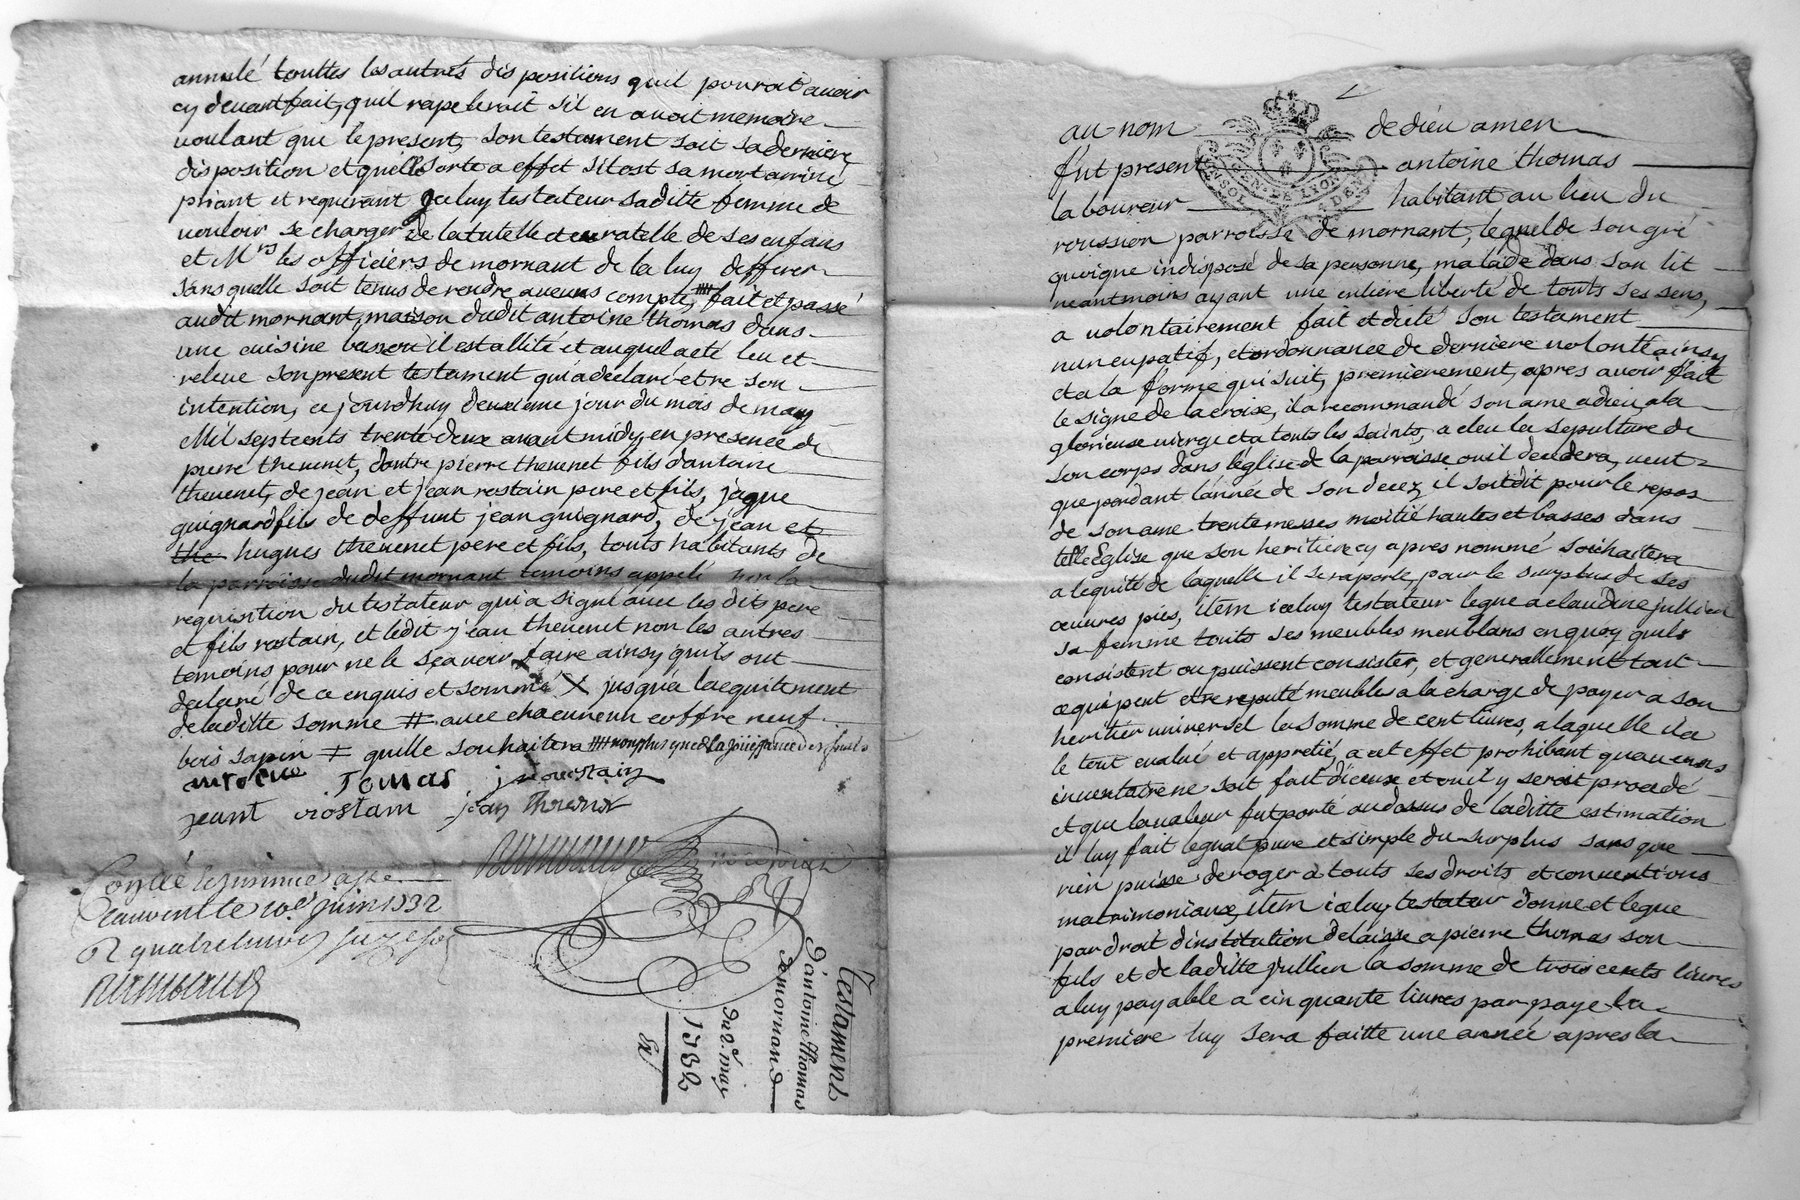 annulé touttes les autres dispositions quil pouroit avoir
cy devant fait, quil rapeleroit s'il en avoit memoire
voulant que le present, son testament soit sa derniere
disposition et quelle sorte a effet sitost sa mort arrivé
priant et requerant iceluy testateur saditte femme de
vouloir se charger de la tutelle et curatelle de ses enfans
et Mrs les officiers de mornant de la luy defferer
sans quelle soit tenus de rendre aucuns compte, fait et passé
audit mornant, maison dudit antoine thomas dans
une cuisine basse ou il est allité et auquel a eté leu et
releue son present testament qui a declaré etre son
intention, ce jourdhuy deuxieme jour du mois de may
Mil sept cents trente deux avant midy, en presence de
pierre thevenet, dautre pierre thevenet fils dantoine
thevenet, de jean et jean rostain pere et fils, jaque
guignard fils de deffunt jean guignard, de jean et
the hugues thevenet pere et fils, touts habitants de
la parroisse dudit mornant temoins appelé sur la
requisition du testateur qui a signé avec les dits pere
et fils rostain, et ledit jean thevenet non les autres
temoins pour ne le sçavoir faire ainsy quils ont
declaré de ce enquis et sommé X jusqua lacquitement
de laditte somme # avec chacun un coffre neuf
bois sapin ≠ quelle souhaitera
antoine Tomas j rouestain
jeant riostam jean Thevenet
Testament
d'antoine thomas
de mornand
du 2e may
1732
au nom de dieu amen
fut present antoine thomas
laboureur habitant au lieu du
roussion parroisse de mornant, lequel de son gré
quoique indisposé de sa personne, malade dans son lit
neantmoins ayant une entiere liberté de touts ses sens,
a volontairement fait et dicté son testament
nuncupatif, et ordonnance de derniere volonté ainsy
et a la forme qui suit, premierement, apres avoir fait
le signe de la croix, il a recommandé son ame a dieu, a la
glorieuse vierge et a touts les saints, a eleu la sepulture de
son corps dans leglise de la parroisse ou il decedera, veut
que pendant lannée de son decez, il soit dit pour le repos
de son ame trente messes moitié hautes et basses dans
telle Eglise que son heritiere cy apres nommé souhaitera
a lequité de laquelle il se raporte, pour le surplus de ses
œuvres pies, item iceluy testateur legue a claudine jullien
sa femme touts ses meubles meublans en quoy quils
consistent ou puissent consister, et generallement tout
ce qui peut etre reputé meubles a la charge de payer a son
heritier universel la somme de cent livres, a laquelle il a
le tout evalué et appretié, a cet effet prohibant quaucuns
inventaire ne soit fait diceux et ou il y seroit procedé
et que la valeur fut porté au dessus de laditte estimation
il luy fait legat pure et simple du surplus sans que
rien puisse deroger a touts ses droits et conventions
matrimoniaux, item iceluy testateur donne et legue
par droit dinstitution delaisse a pierre thomas son
fils et de laditte jullien la somme de trois cents livres
a luy payable a cinquante livres par paye la
premiere luy sera faitte une année apres la